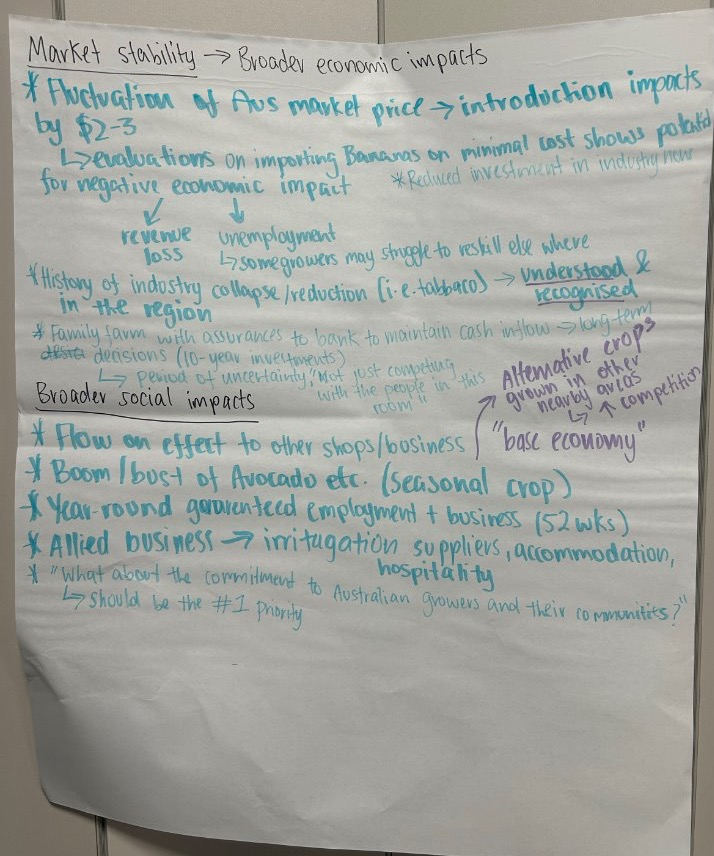 Market stability → Broader economic impacts
* Fluctuation of Aus market price → introduction impacts
by $2-3
↳ evaluations on importing Bananas on minimal cost shows potential
for negative economic impact
* Reduced investment in industry now
↙ ↓
revenue loss
unemployment
↳ some growers may struggle to reskill else where
* History of industry collapse/reduction (i.e. tabbaco) → understood &
in the region
recognised
* Family farm with assurances to bank to maintain cash inflow → long-term
decisions (10-year investments)
↳ period of uncertainty "Not just competing
with the people in this
room"
Alternative crops
grown in other
nearby areas
↳ ↑ competition
"base economy"
Broader social impacts
* Flow on effect to other shops/business
* Boom/bust of Avocado etc. (seasonal crop)
* Year-round gararenteed employment + business (52 wks)
* Allied business → irritagation suppliers, accommodation,
hospitality
* "What about the commitment to Australian growers and their communitites?"
↳ should be the #1 priority